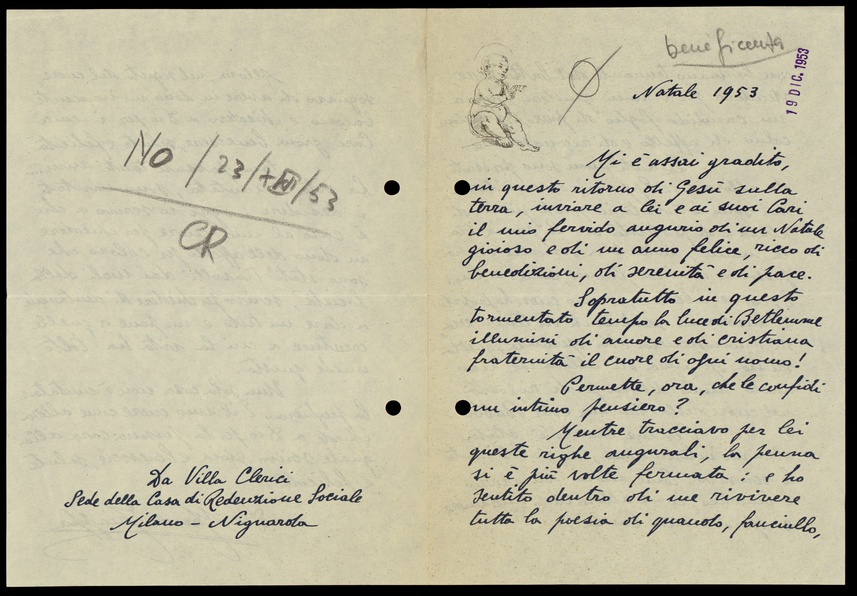 No / 23/XII/53
CR
Da Villa Clerici
Sede della Casa di Redenzione Sociale
Milano - Niguarda
beneficenza
19 DIC. 1953
Natale 1953
Mi è assai gradito,
in questo ritorno di Gesù sulla
terra, inviare a lei e ai suoi Cari
il mio fervido augurio di un Natale
gioioso e di un anno felice, ricco di
benedizioni, di serenità e di pace.
Sopratutto in questo
tormentato tempo la luce di Betlemme
illumini di amore e di cristiana
fraternità il cuore di ogni uomo!
Permette, ora, che le confidi
un intimo pensiero?
Mentre tracciavo per lei
queste righe augurali, la penna
si è più volte fermata: e ho
sentito dentro di me rivivere
tutta la poesia di quando, fanciullo,